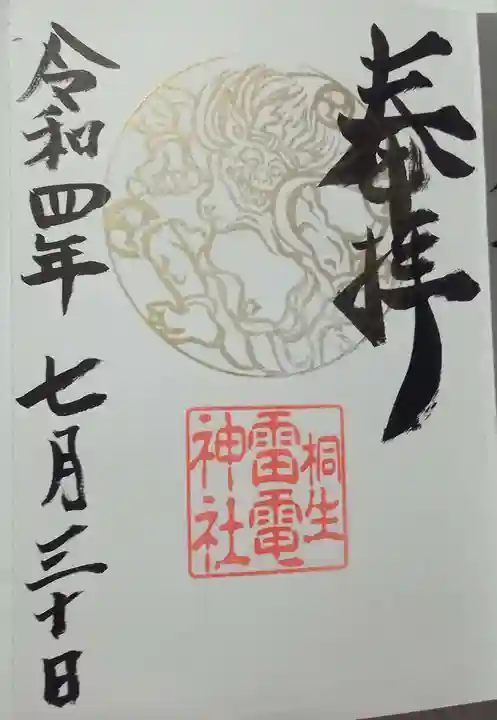 奉拝
桐生
雷電
神社
令和四年七月三十日